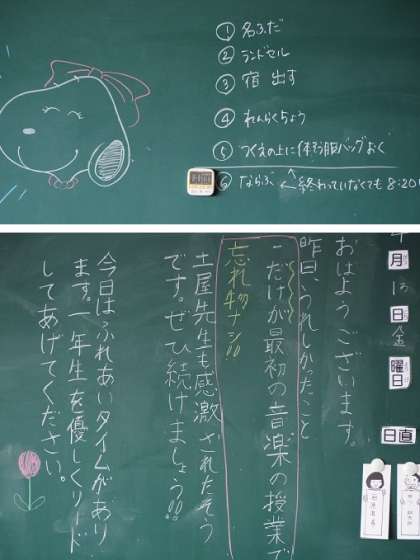 ① 名ふだ
② ランドセル
③ 宿 出す
④ れんらくちょう
⑤ つくえの上に体そう服バッグおく
⑥ ならぶ ← 終わっていなくても 8:20
月
日
金
曜日
日直
おはようございます。
昨日、うれしかったこと
だけが最初の音楽の授業で
忘れ物ナシ!!
土屋先生も感激されたそう
です。ぜひ続けましょう!!
今日はふれあいタイムがあり
ます。一年生を優しくリード
してあげてください。